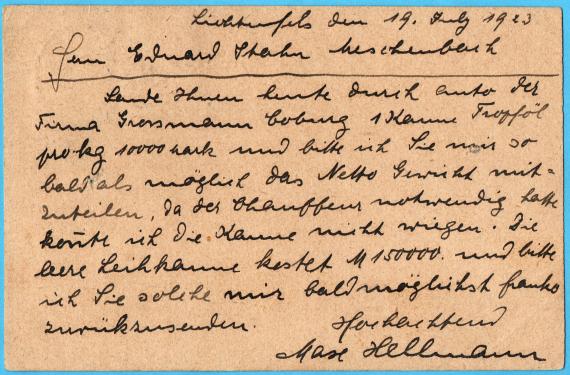 Lichtenfels den 19. July 1923
Herrn Eduard Stahn Meschenbach
Sande Ihnen heute durch auto der
Firma Grossmann Coburg 1 Kanne Tropföl
pro kg 10000 mark und bitte ich Sie mir so
bald als möglich das Netto Gewicht mit=
zuteilen, da der Chauffeur notwendig hatte
konnte ich die Kanne nicht wiegen. Die
leere Leihkanne kostet M 150000. und bitte
ich Sie solche mir baldmöglichst franko
zurückzusenden.
Hochachtend
Max Hellmann